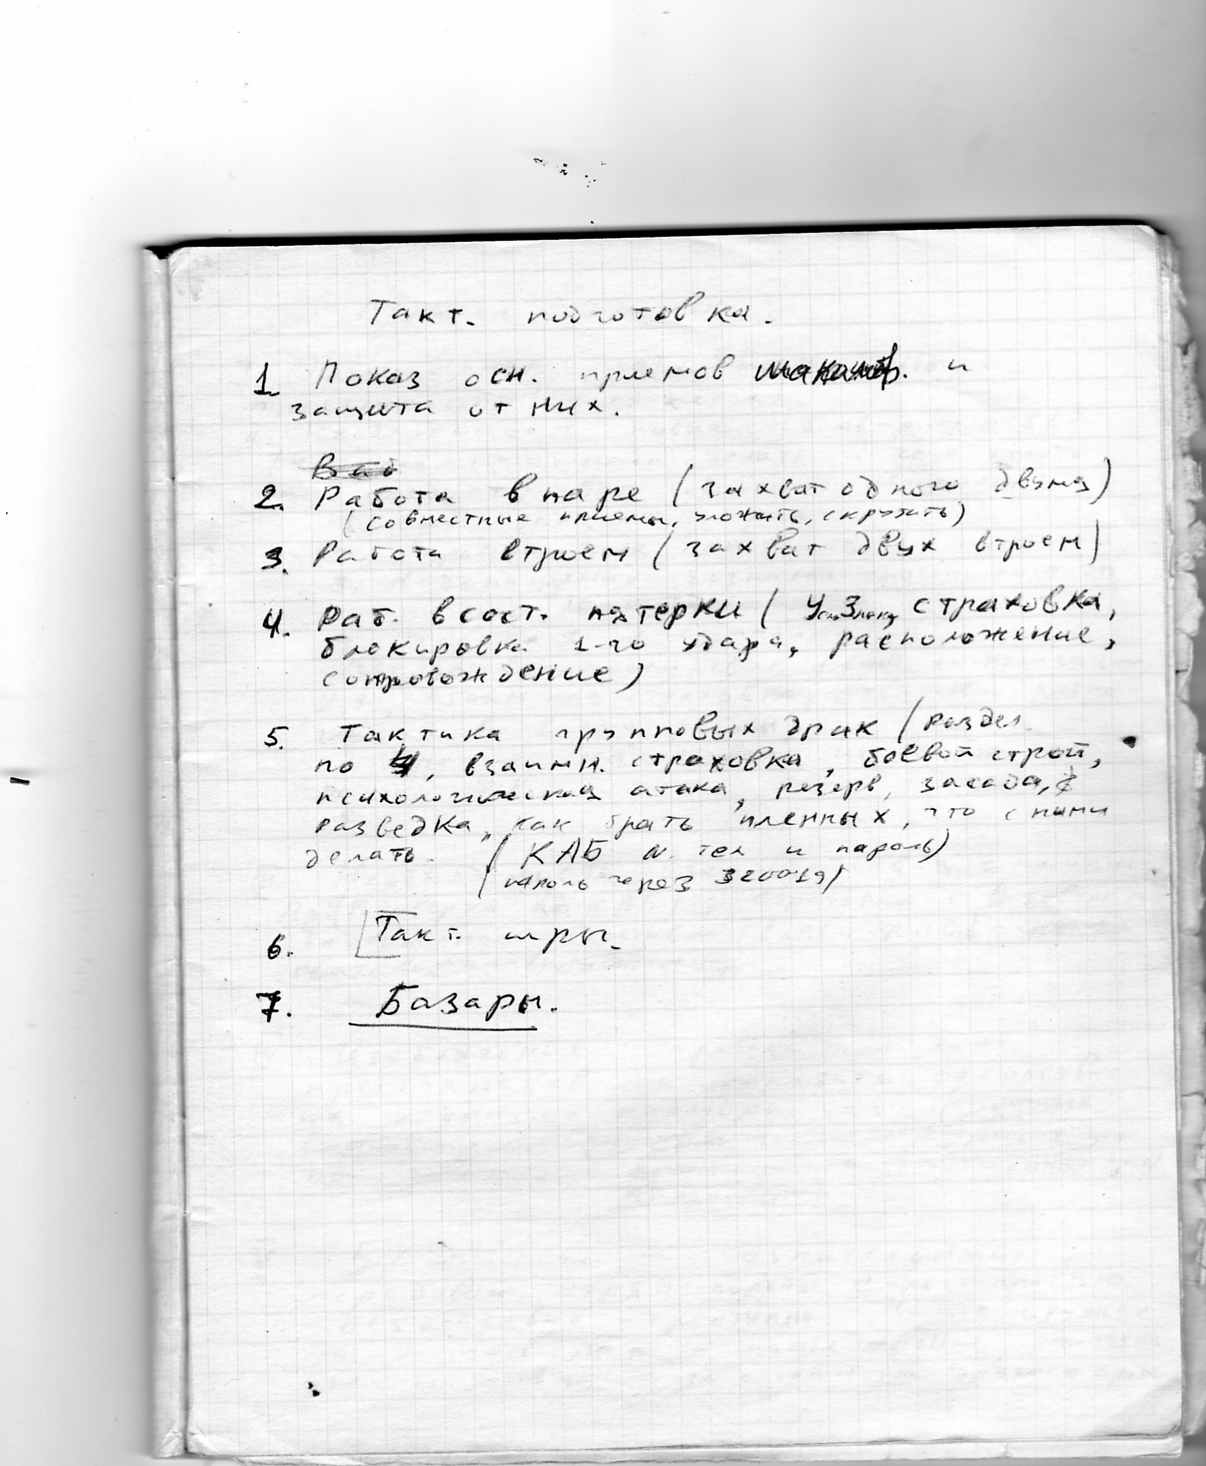 Такт. подготовка.
1. Показ осн. приемов и
защита от них.
2. Работа в паре (захват одного двумя)
(совместные приемы, уложить, скрутить)
3. Работа втроем (захват двух втроем)
4. Раб. в сост. пятерки ( страховка,
блокировка 1-го удара, расположение,
сопровождение)
5. Тактика групповых драк (раздел.
по 4, взаимн. страховка, боевой строй,
психологическая атака, резерв, засада,
разведка, как брать пленных, что с ними
делать. (КАБ N. тел и пароль)
(пароль через 320019)
6. Такт. игры.
7. Базары.